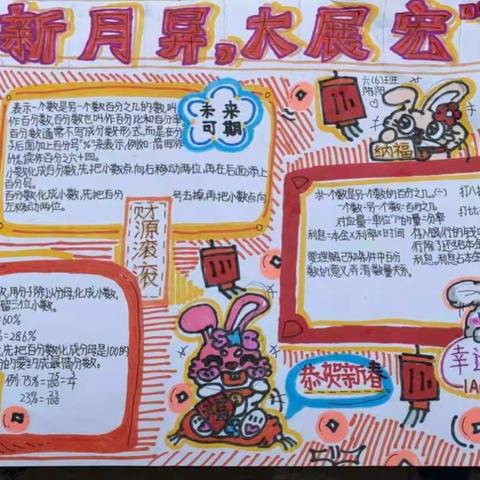 新月昇,大展宏
表示一个数是另一个数百分之几的数,叫
作百分数,百分数也叫作百分比和百分率
百分数通常不写成分数形式,而是在分
子后面加上百分号"%"来表示,例如:
读作百分之六十四。
小数化成百分数,先把小数点向右移动两位,再在后面添上
百分号。
百分数化成小数,先把百分号去掉,再把小数点向
左移动两位。
未来
可期
六(6)班
纳福
财源滚滚
求一个数是另一个数的百分之几(一)
一个数÷另一个数=百分之几
对应量÷单位"1"的量=分率
利息=本金×利率×时间
要理解已知条件中百分
数的意义,弄清数量关系。
打八
打比
存入银行的
利息。利息占本金
用分子除以分母,化成小数,
留三位小数。
=60%
≈28.6%
先把百分数化成分母是100的
分的要约成最简分数。
例 75%=75/100=3/4
23%=23/100
恭贺新春
幸运